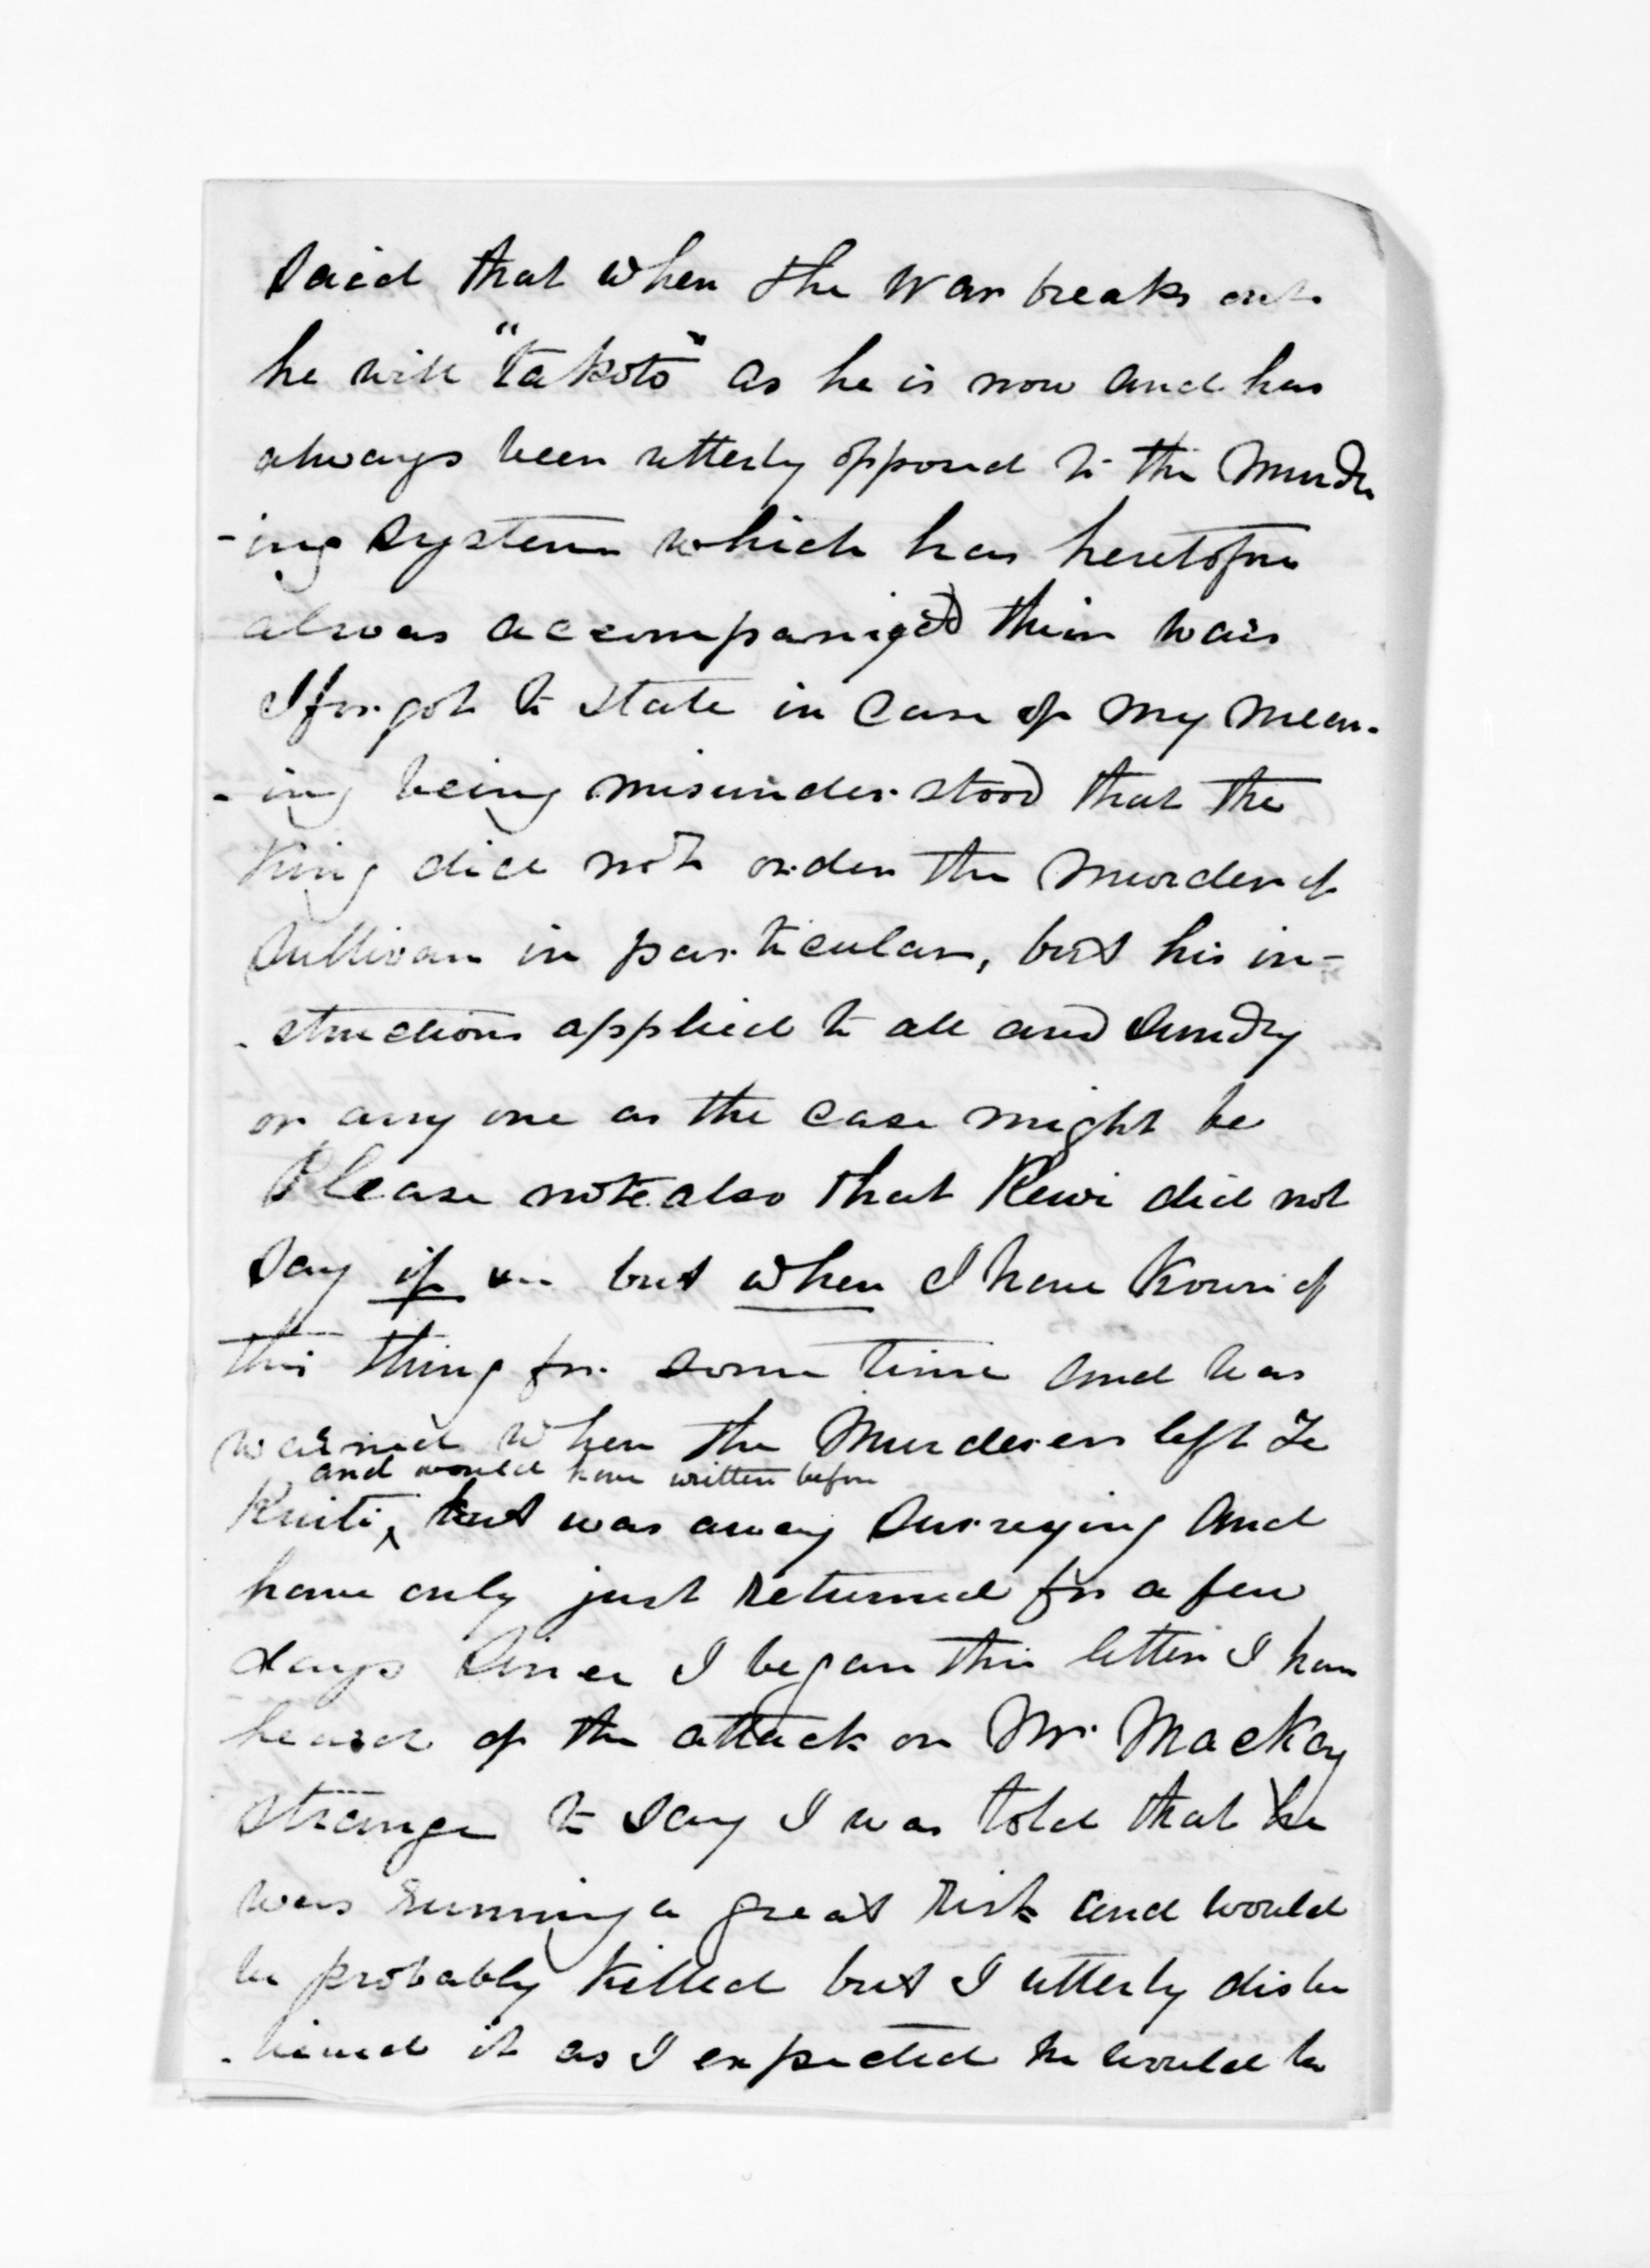 said that when the war breaks out
he will "takoto" as he is now and has
always been utterly opposed to the murder
-ing system which has heretofore
alwas accompanied their wars
I forgot to state in case of my mean-
-ing being misunderstood that the
King did not order the murder of
Sullivan in particular, but his in-
-structions applied to all and sundry
or any one as the case might be
Please note also that Rewi did not
say if but when I have known of
this thing for some time and was
warned when the Murderers left Te
and would have written before
Kuiti, but was away surveying and
have only just returned for a few
days Since I began this letter I have
heard of the attack on Mr. Mackay
strange to say I was told that he
was running a great risk and would
be probably killed but I utterly disbe
-lieved it as I expected he would be